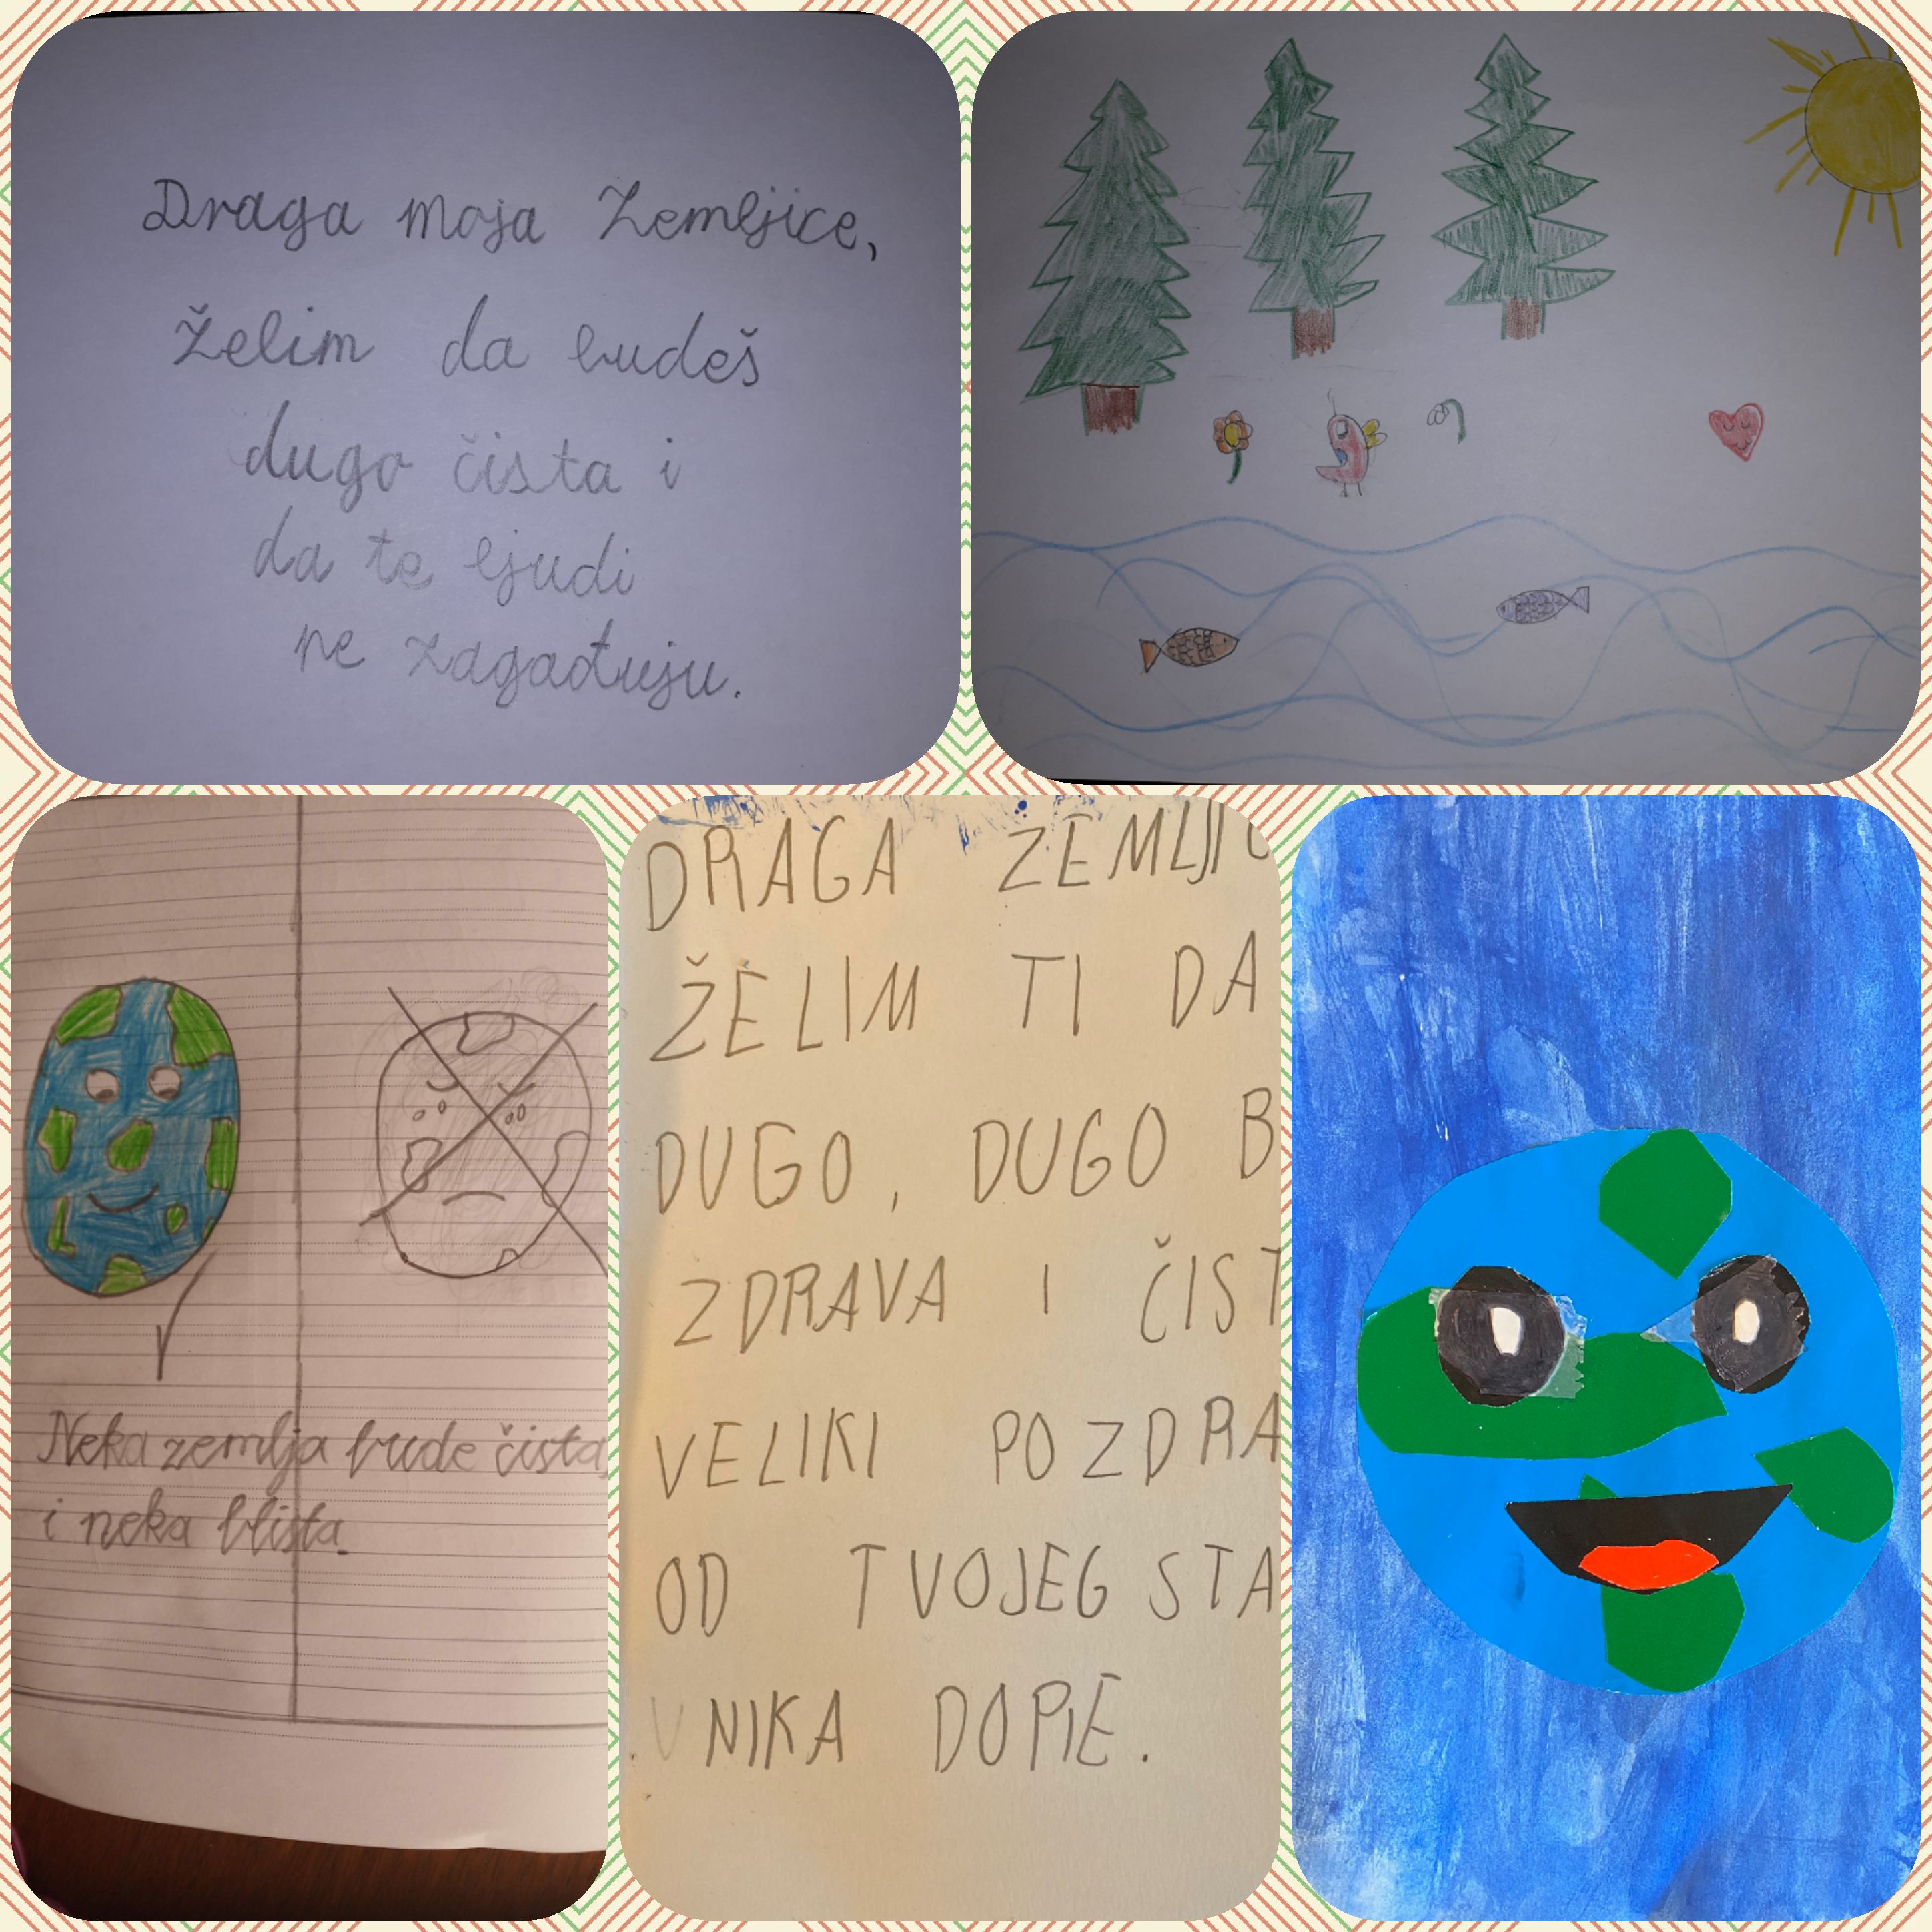 Draga moja Zemljice,
želim da budeš
dugo čista i
da te ljudi
ne zagađuju.
Neka zemlja bude čista,
i neka blista.
DRAGA ZEMLJIC
ŽELIM TI DA
DUGO, DUGO B
ZDRAVA I ČIST
VELIKI POZDRA
OD TVOJEG STA
.VNIKA DOPIE.